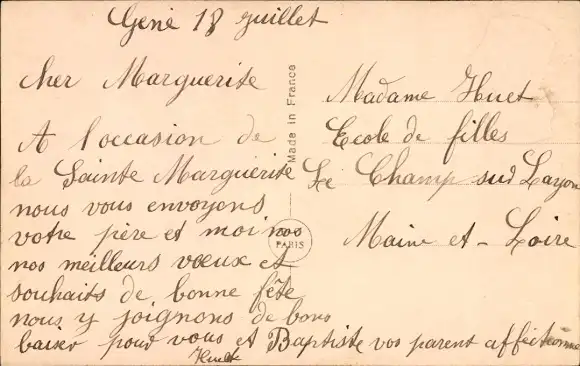 Gené 18 juillet
cher Marguerite
A l'occasion de
la Sainte Marguerite
nous vous envoyons
votre père et moi nos
nos meilleurs vœux et
souhaits de bonne fête
nous y joignons de bons
baiser pour vous et Baptiste vos parent affectionné
Huet
Made in France
PARIS
Madame Huet
Ecole de filles
Le Champ sur Layon
Maine et - Loire